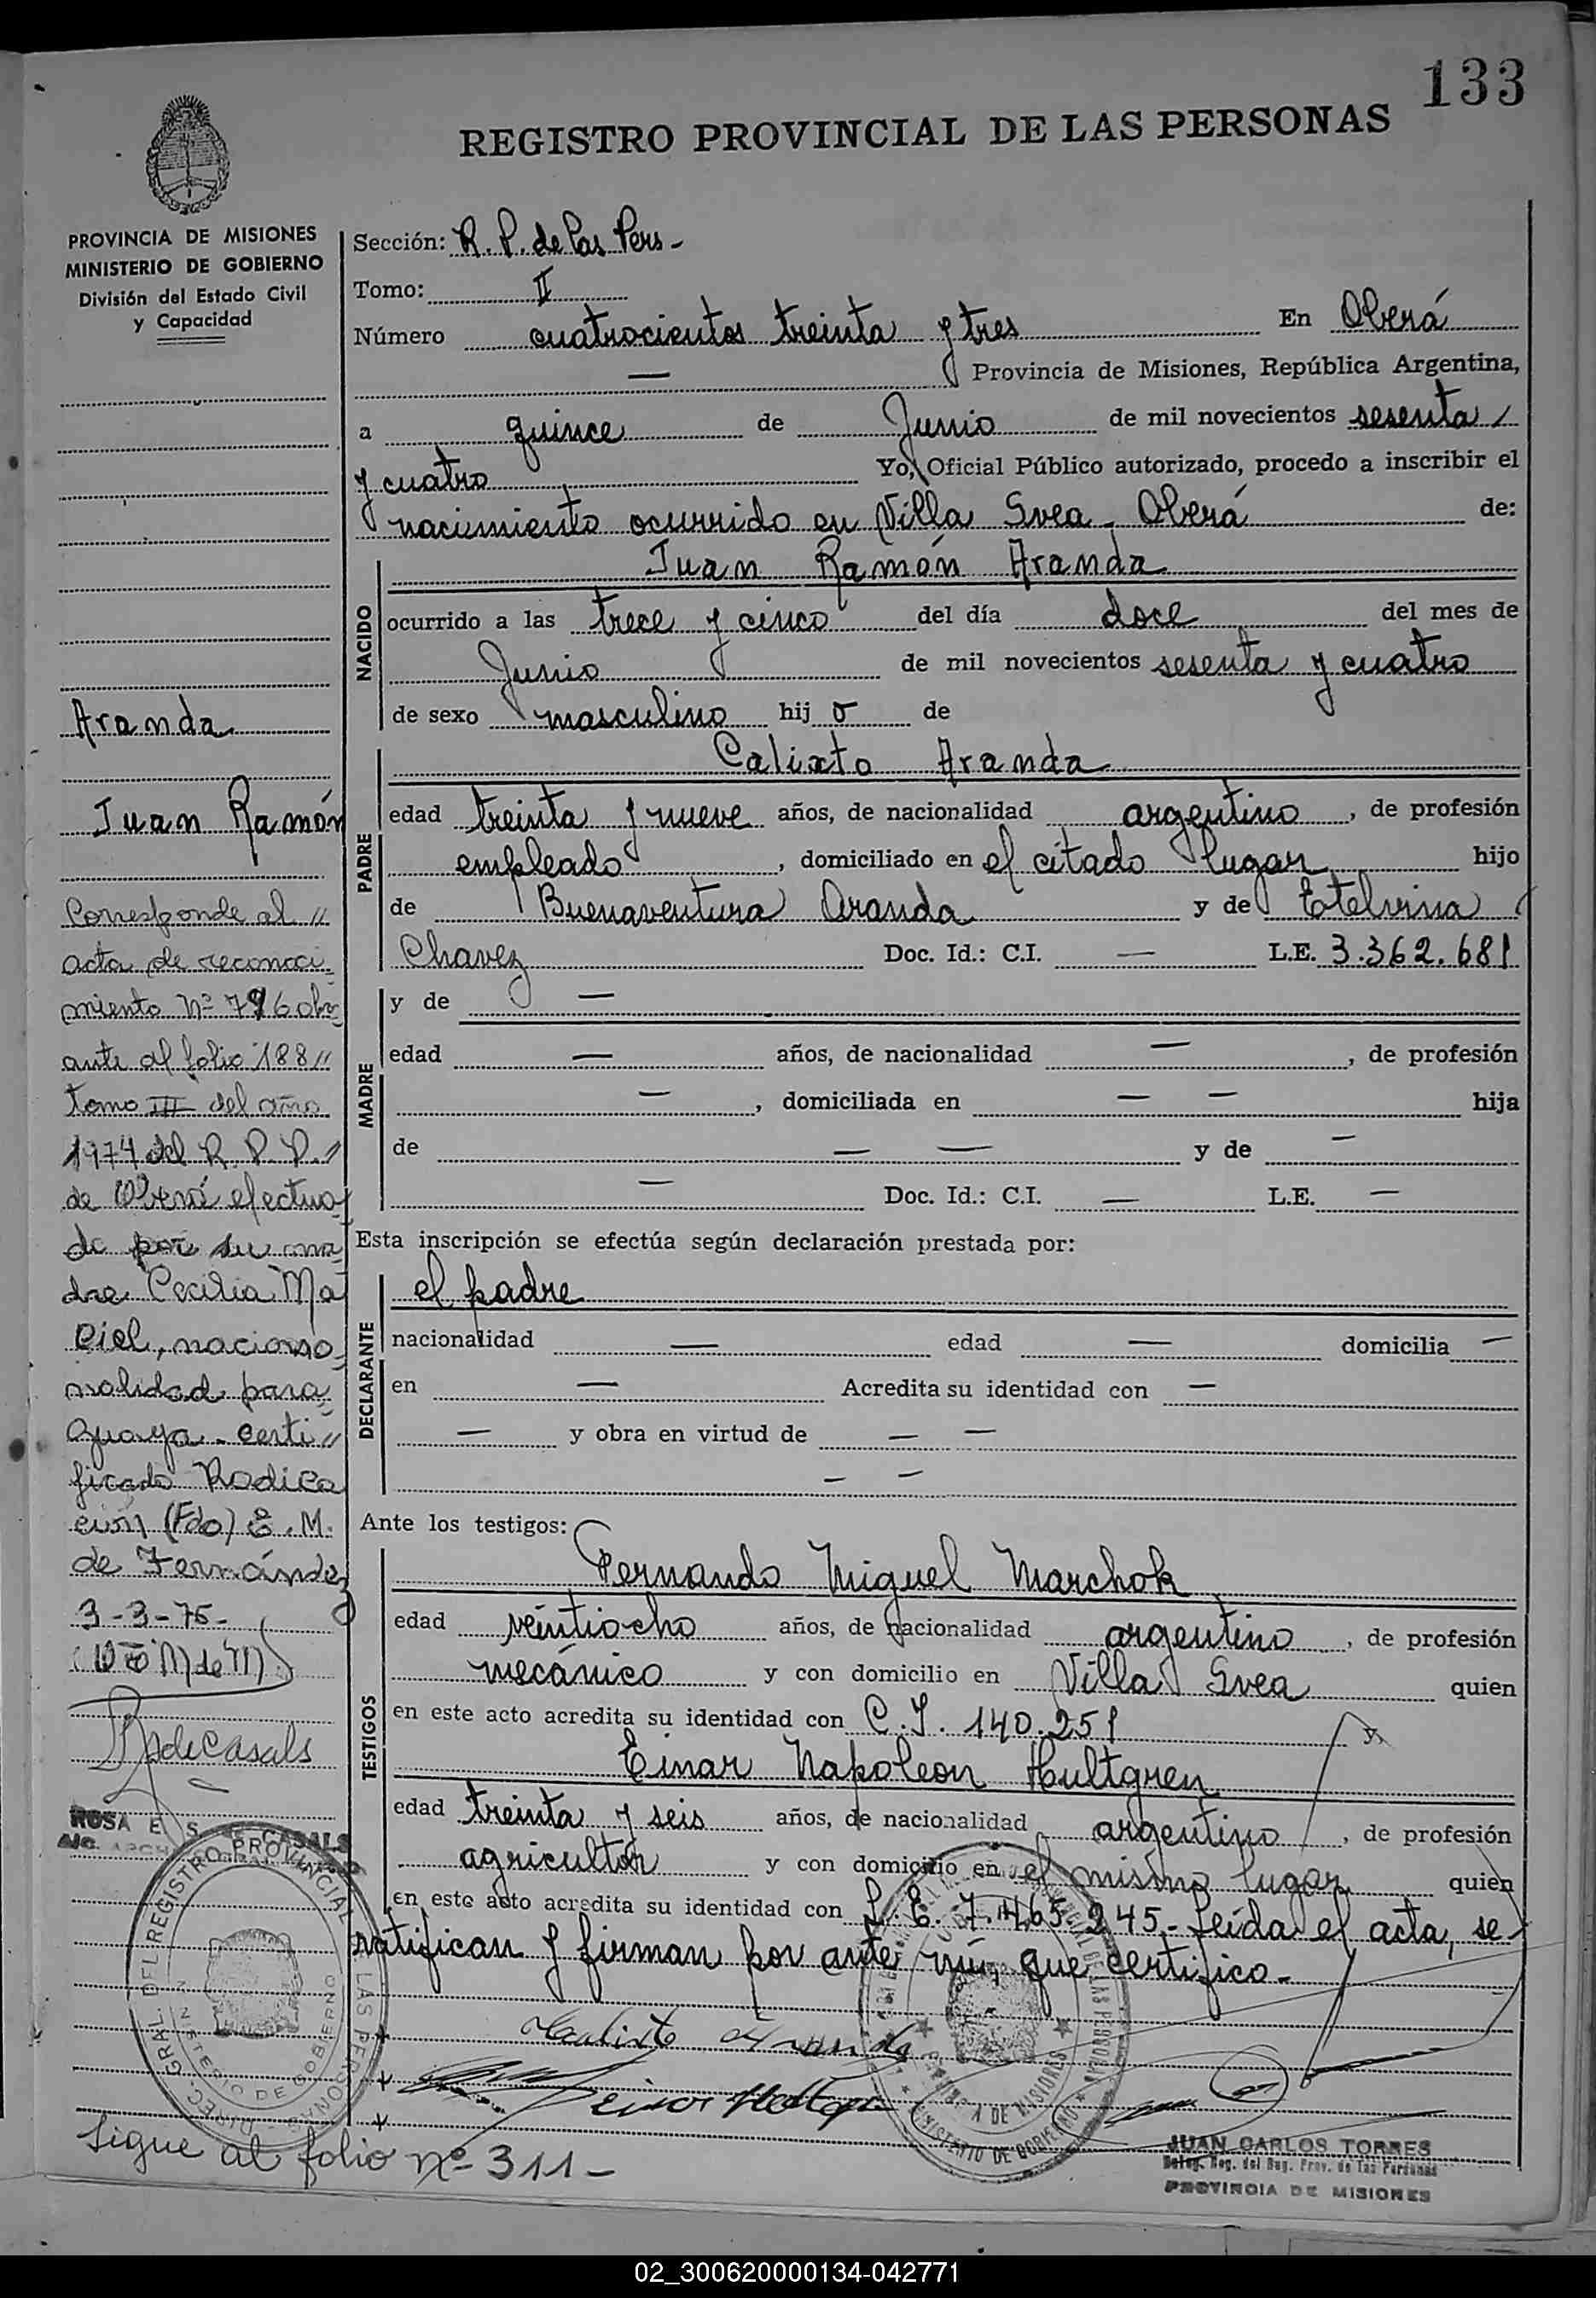 133
REGISTRO PROVINCIAL DE LAS PERSONAS
PROVINCIA DE MISIONES
MINISTERIO DE GOBIERNO
División del Estado Civil
y Capacidad
Sección: R. P. de las Pers -
Tomo: II
Número cuatrocientos treinta y tres En Oberá
— Provincia de Misiones, República Argentina,
a quince de Junio de mil novecientos sesenta /
y cuatro Yo, Oficial Público autorizado, procedo a inscribir el
nacimiento ocurrido en Villa Svea - Oberá de:
NACIDO
Juan Ramón Aranda
ocurrido a las trece y cinco del día doce del mes de
Junio de mil novecientos sesenta y cuatro
de sexo masculino hij o de
PADRE
Calixto Aranda
edad treinta y nueve años, de nacionalidad argentino, de profesión
empleado, domiciliado en el citado lugar hijo
de Buenaventura Aranda y de Etelvina
Chavez Doc. Id.: C.I. — L.E. 3.362.681
MADRE
y de —
edad — años, de nacionalidad —, de profesión
—, domiciliada en — — hija
de — — y de —
— Doc. Id.: C.I. — L.E. —
Esta inscripción se efectúa según declaración prestada por:
DECLARANTE
el padre
nacionalidad — edad — domicilia —
en — Acredita su identidad con —
— y obra en virtud de — —
— —
Ante los testigos:
TESTIGOS
Fernando Miguel Marchok
edad veintiocho años, de nacionalidad argentino, de profesión
mecánico y con domicilio en Villa Svea quien
en este acto acredita su identidad con C.I. 140.251 y,
Einar Napoleon Hultgren
edad treinta y seis años, de nacionalidad argentino, de profesión
agricultor y con domicilio en el mismo lugar quien
en este acto acredita su identidad con L.E. 7.465.245.- Leída el acta, se
ratifican y firman por ante mí, que certifico.-
Calixto Aranda
JUAN CARLOS TORRES
Deleg. Reg. del Reg. Prov. de las Personas
PROVINCIA DE MISIONES
Aranda
Juan Ramón
Corresponde al //
acta de reconoci-
miento Nº 796 obr-
ante al folio 188 //
tomo III del año
1974 del R. P. P. //
de Oberá efectua-
do por su ma-
dre Cecilia Ma
ciel, naciona-
nalidad para-
guaya - certi //
ficado Radica
ción (Fdo) E. M.
de Fernández
3-3-75-
R de Casals
ROSA E. S. de CASALS
DIREC. GRAL. DEL REGISTRO PROVINCIAL DE LAS PERSONAS
MINISTERIO DE GOBIERNO
Sigue al folio nº 311 -
02_300620000134-042771